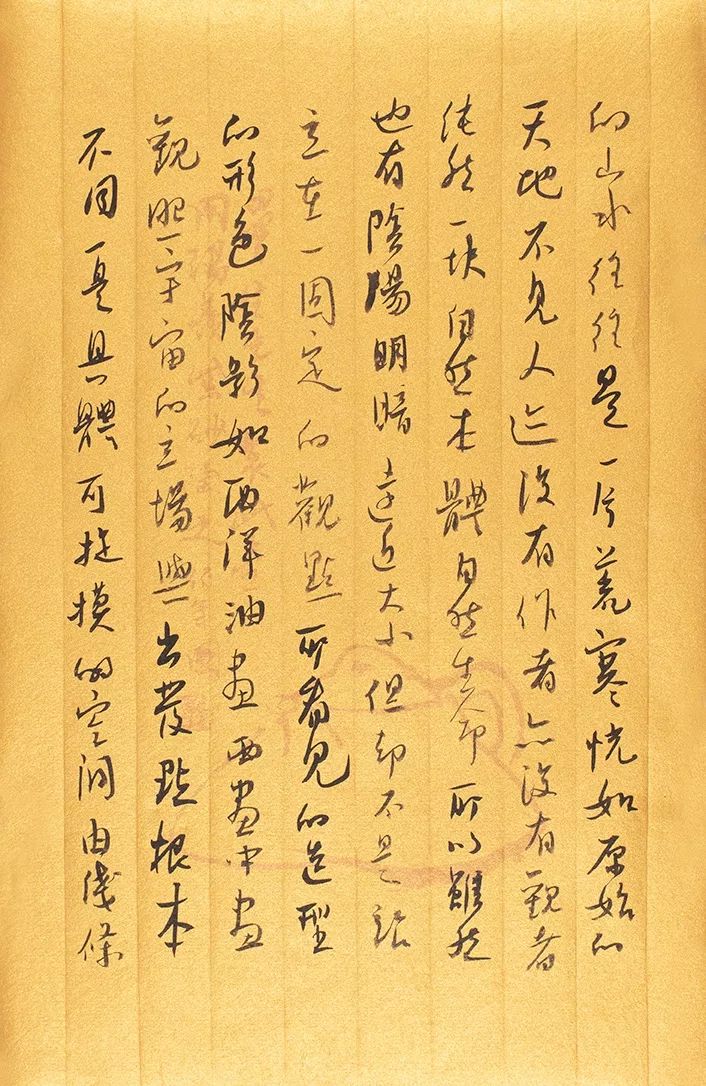 的山水往往是一片荒寒恍如原始的
天地不見人迹沒有作者亦沒有觀者
純然一塊自然本體自然生命所以雖然
也有陰陽明暗遠近大小但却不是站
立在一固定的觀點所看見的造型
的形色陰影如西洋油畫西畫中畫
觀照宇宙的立場與出發點根本
不同一是具體可捉摸的空間由綫條